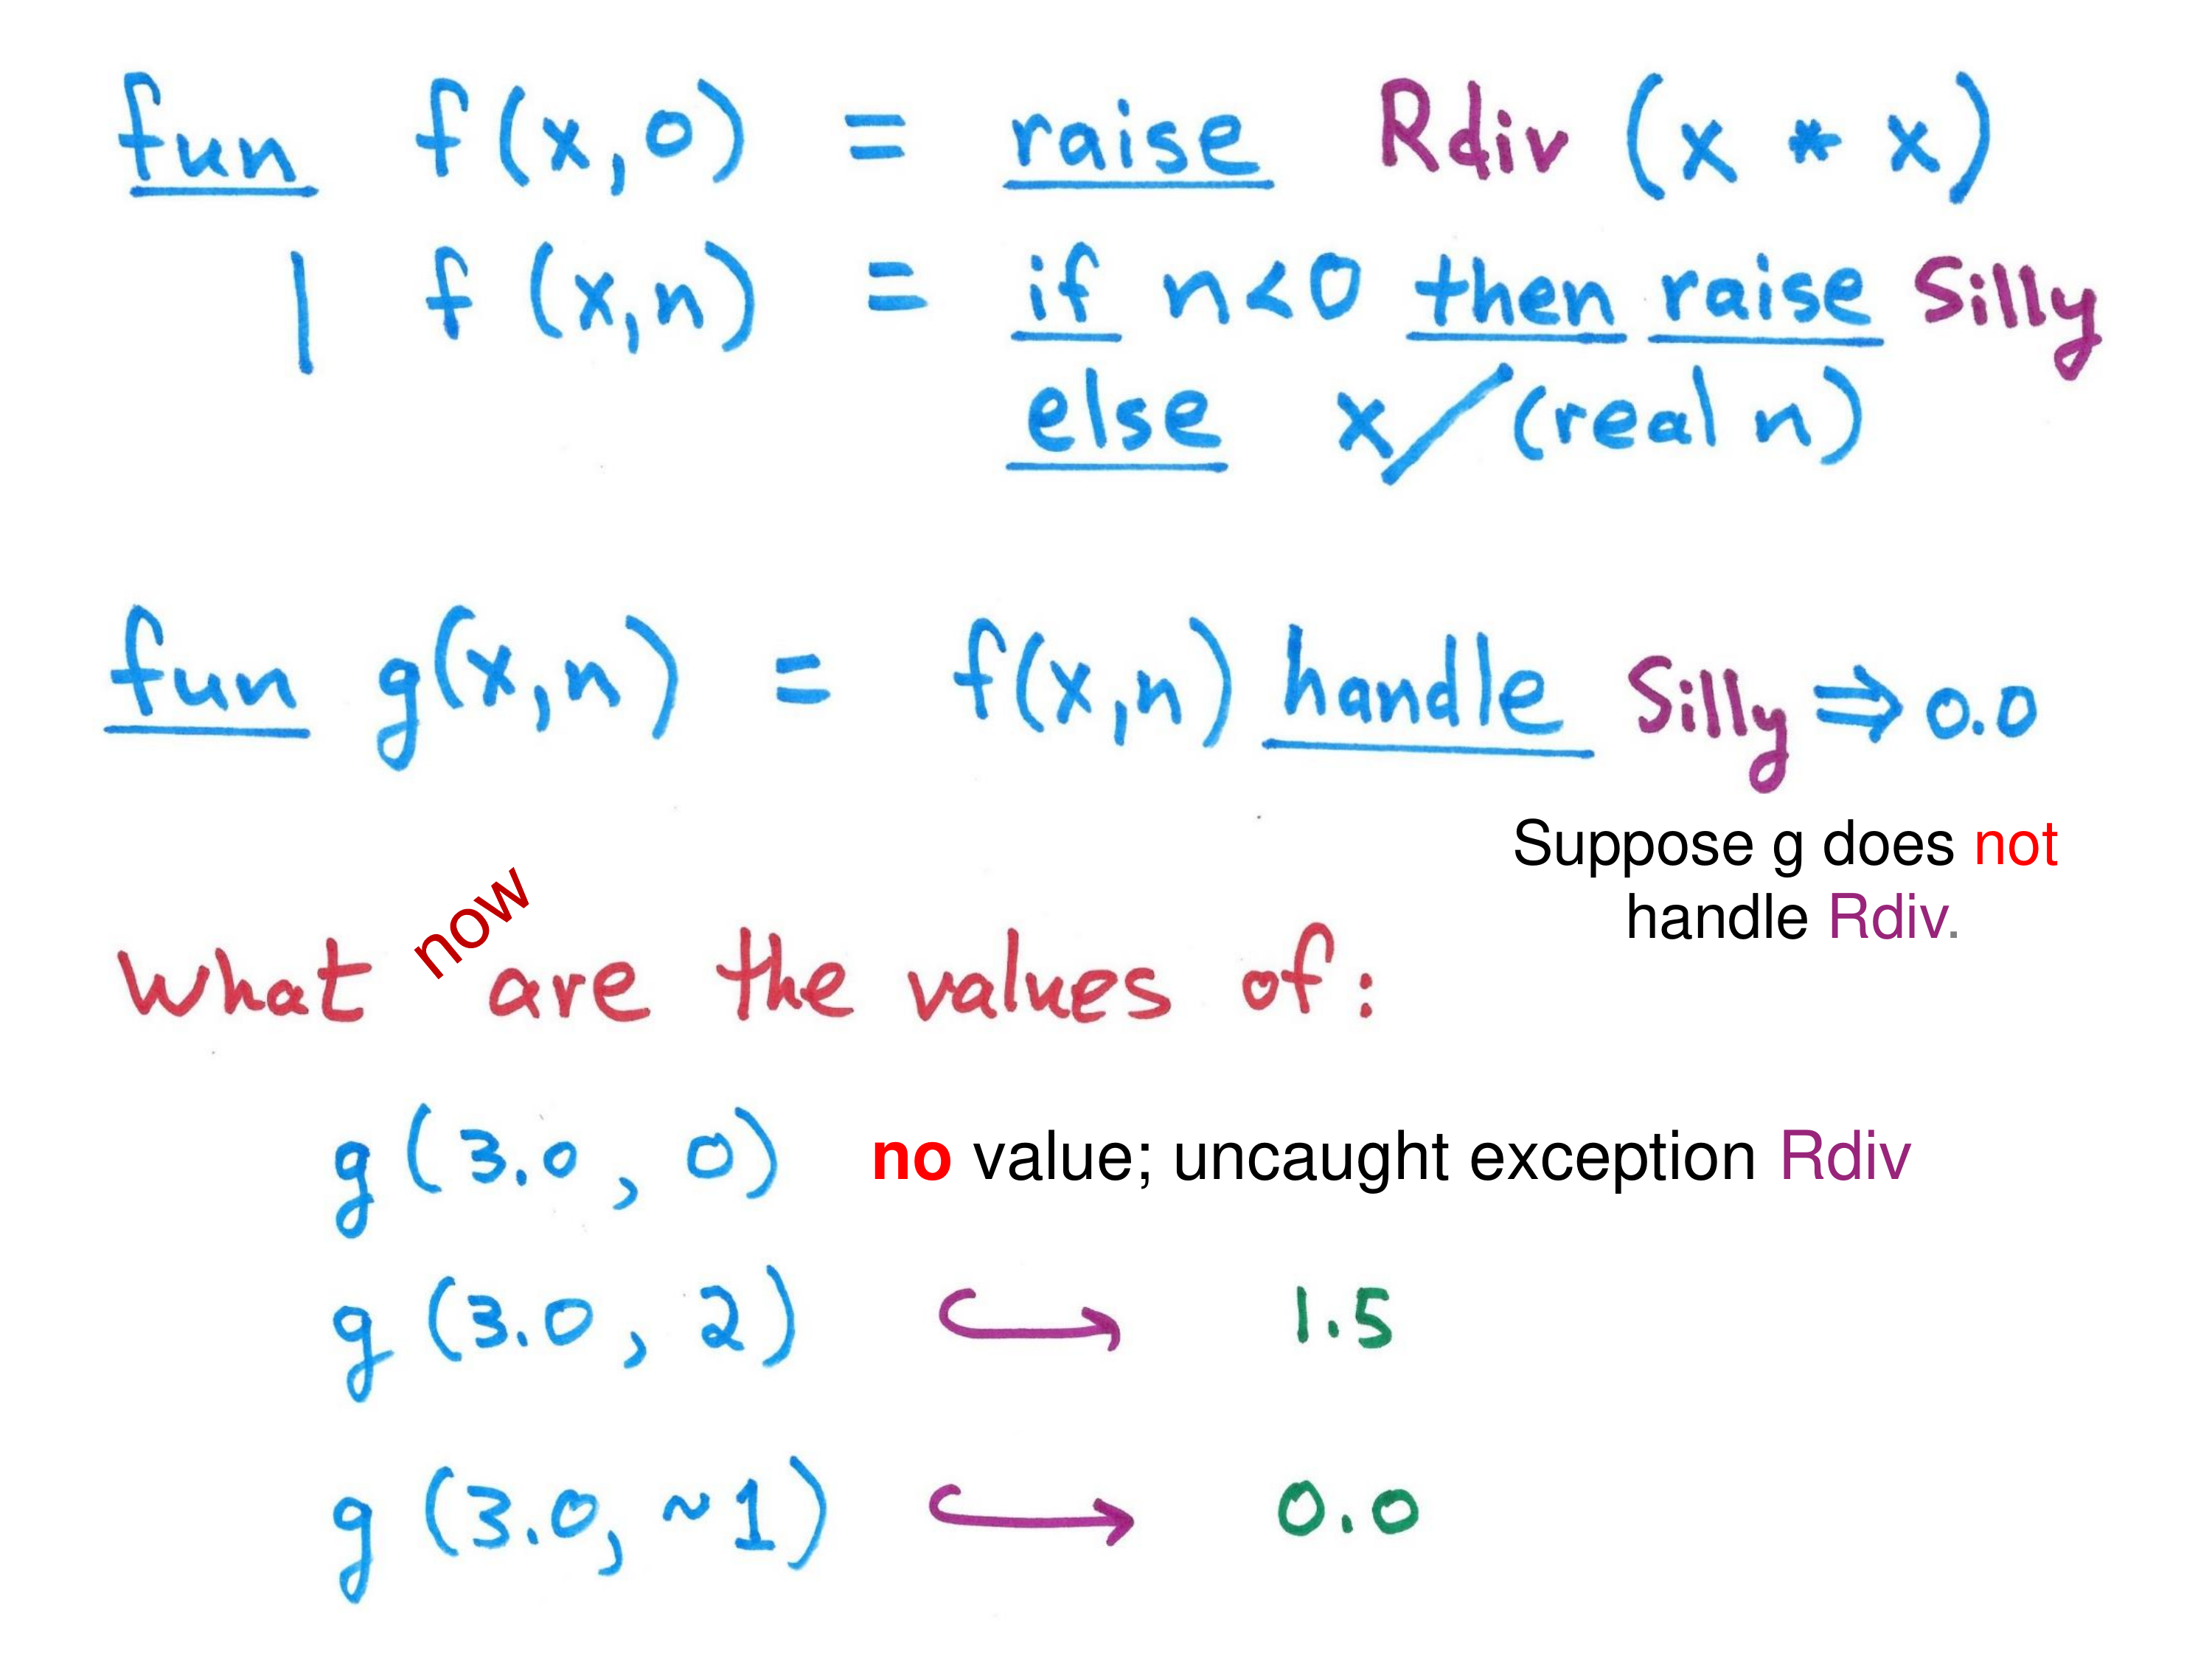 fun f(x,0) = raise Rdiv (x * x)
| f(x,n) = if n<0 then raise Silly
else x/(real n)
fun g(x,n) = f(x,n) handle Silly ⇒ 0.0
Suppose g does not
handle Rdiv.
now
What are the values of:
g(3.0, 0) no value; uncaught exception Rdiv
g(3.0, 2) ↪ 1.5
g(3.0, ~1) ↪ 0.0